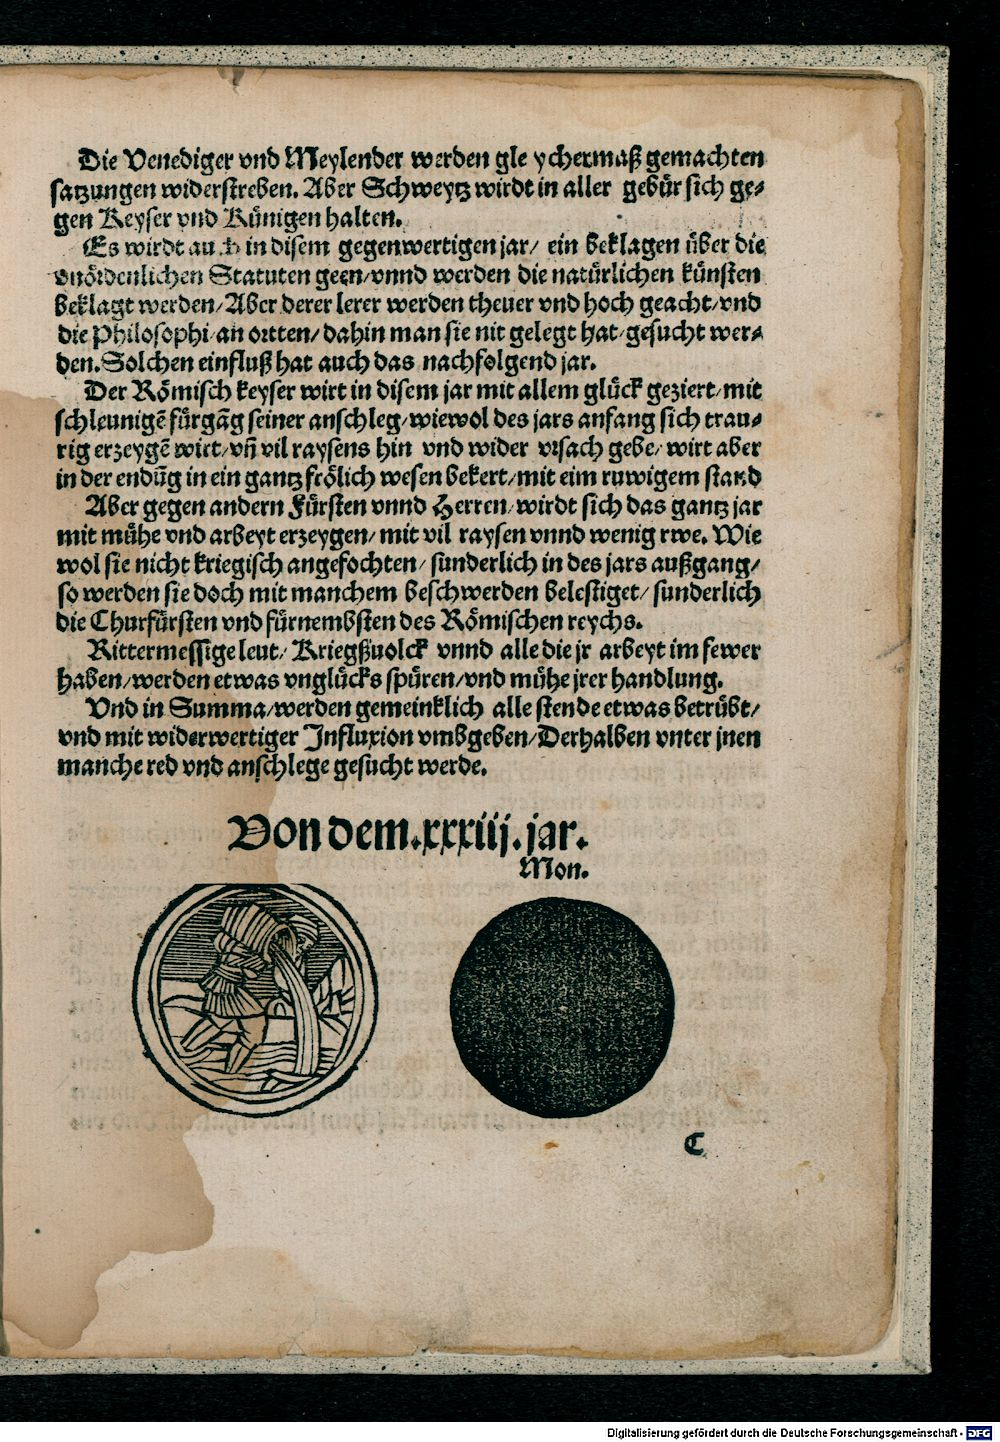 Die Venediger vnd Meylender werden gle ychermaß gemachten
satzungen widerstreben. Aber Schweytz wirdt in aller gebür sich ge-
gen Keyser vnd Künigen halten.
Es wirdt au h in disem gegenwertigen jar/ ein beklagen über die
vnördenlichen Statuten geen/vnnd werden die natürlichen künsten
beklagt werden/Aber derer lerer werden theuer vnd hoch geacht/vnd
die Philosophi an ortten/dahin man sie nit gelegt hat/gesucht wer-
den. Solchen einfluß hat auch das nachfolgend jar.
Der Römisch keyser wirt in disem jar mit allem glück geziert/mit
schleunigē fürgāg seiner anschleg/wiewol des jars anfang sich trau-
rig erzeygē wirt/vñ vil raysens hin vnd wider vrsach gebe/wirt aber
in der endūg in ein gantz frölich wesen bekert/mit eim ruwigem stand
Aber gegen andern Fürsten vnnd Herren/wirdt sich das gantz jar
mit mühe vnd arbeyt erzeygen/mit vil raysen vnnd wenig rwe. Wie
wol sie nicht kriegisch angefochten/sunderlich in des jars außgang/
so werden sie doch mit manchem beschwerden belestiget/sunderlich
die Churfürsten vnd fürnembsten des Römischen reychs.
Rittermessige leut/Kriegßuolck vnnd alle die jr arbeyt im fewer
haben/werden etwas vnglücks spüren/vnd mühe jrer handlung.
Vnd in Summa/werden gemeinklich alle stende etwas betrübt/
vnd mit widerwertiger Influxion vmbgeben/Derhalben vnter jnen
manche red vnd anschlege gesucht werde.
Von dem.xxxiij.jar.
Mon.
C
Digitalisierung gefördert durch die Deutsche Forschungsgemeinschaft - DFG